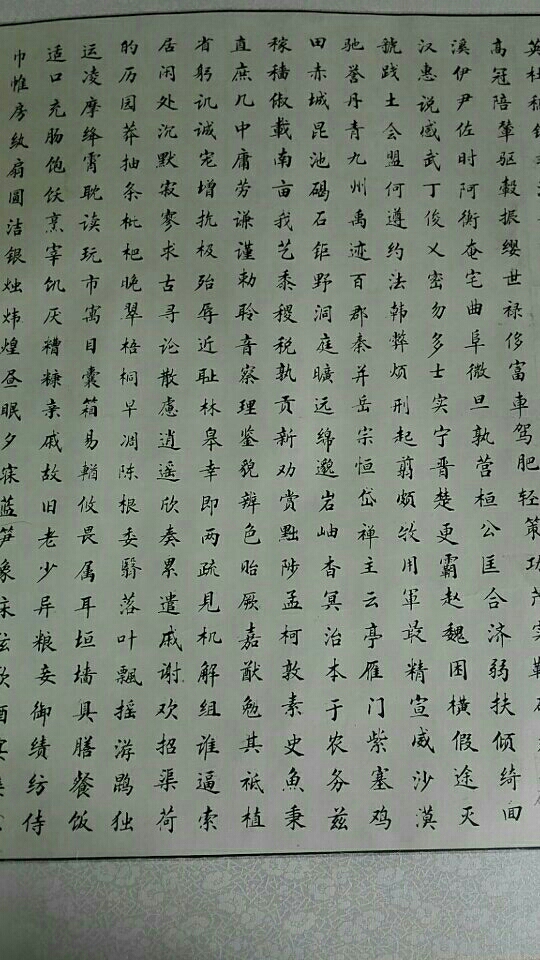 英杜稿
高冠陪辇驱毂振缨世禄侈富車驾肥轻策功茂实勒
溪伊尹佐时阿衡奄宅曲阜微旦孰营桓公匡合济弱扶倾绮面
汉惠说感武丁俊乂密勿多士实宁晋楚更霸赵魏困横假途灭
虢践土会盟何遵约法韩弊烦刑起翦颇牧用軍最精宣威沙漠
驰誉丹青九州禹迹百郡秦并岳宗恒岱禅主云亭雁门紫塞鸡
田赤城昆池碣石钜野洞庭曠远绵邈岩岫杳冥治本于农务兹
稼穑俶載南亩我艺黍稷税孰贡新劝赏黜陟孟柯敦素史魚秉
直庶几中庸劳谦谨勅聆音察理鉴貌辨色贻厥嘉猷勉其祗植
省躬讥诫宠增抗极殆辱近耻林皋幸即两疏见机解组谁逼索
居闲处沉默寂寥求古寻论散慮逍遥欣奏累遣戚谢欢招渠荷
的历园莽抽条枇杷晚翠梧桐早凋陈根委翳落叶飘摇游鹍独
运凌摩绛霄耽读玩市寓目囊箱易輶攸畏属耳垣墙具膳餐饭
适口充肠饱饫烹宰饥厌糟糠亲戚故旧老少异粮妾御绩纺侍
巾帷房纨扇圆洁银烛炜煌昼眠夕寐蓝笋象床弦歌酒宴